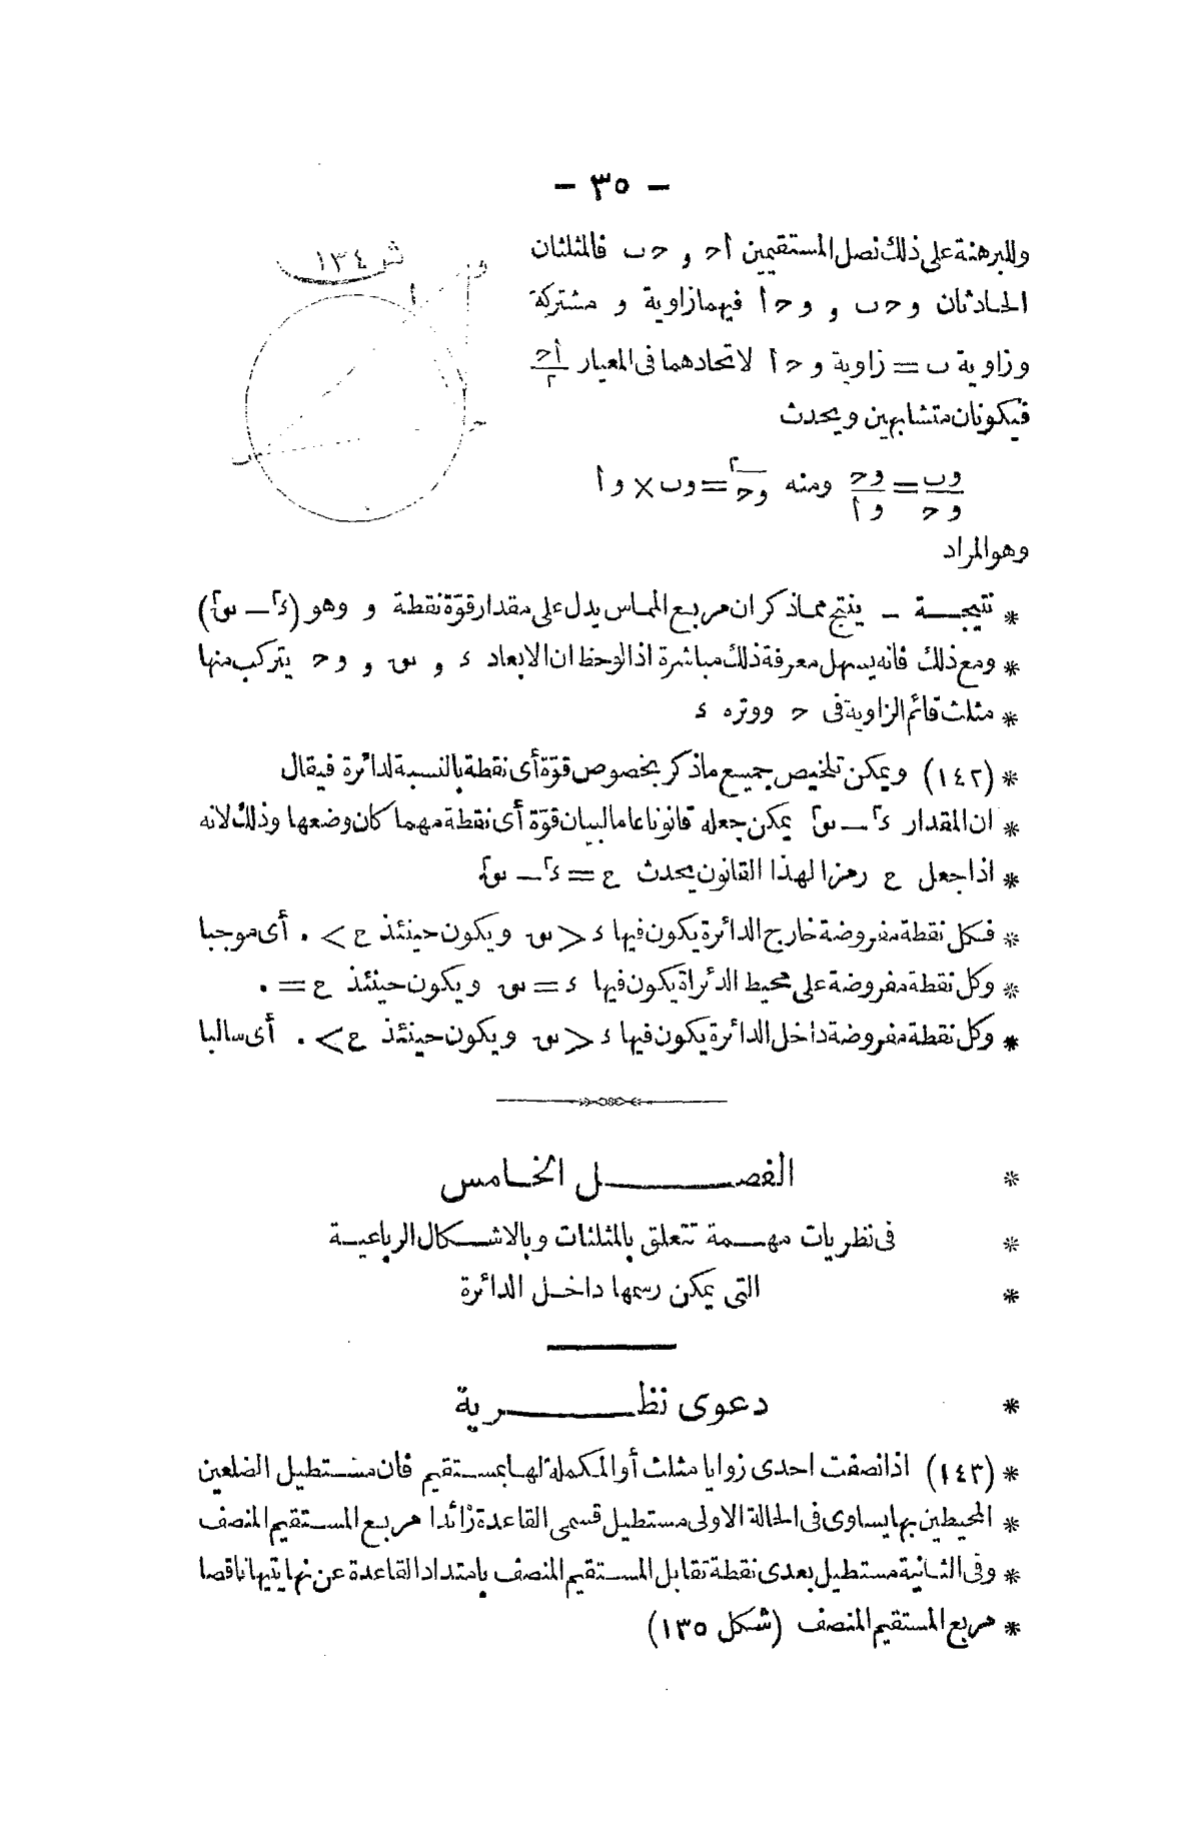 — ٣٥ —
وللبرهنة على ذلك نصل المستقيمين اح و ح ب فالمثلثان
الحادثان و ح ب و و ح ا فيهما زاوية و مشتركة
وزاوية ب = زاوية و ح ا لاتحادهما فى المعيار اح/٢
فيكونان متشابهين ويحدث
وب/وح = وح/وا ومنه وح٢ = وب × وا
وهو المراد
ش ١٣٤
و
ا
ح
ب
* نتيجة — ينتج مماذكر ان مربع المماس يدل على مقدار قوّة نقطة و وهو (ء٢ — س٢)
* ومع ذلك فانه يسهل معرفة ذلك مباشرة اذا لوحظ ان الابعاد ء و س و و ح يتركب منها
* مثلث قائم الزاوية فى ح ووتره ء
* (١٤٢) ويمكن تلخيص جميع ماذكر بخصوص قوّة أى نقطة بالنسبة لدائرة فيقال
* ان المقدار ء٢ — س٢ يمكن جعله قانونا عاما لبيان قوّة أى نقطة مهما كان وضعها وذلك لانه
* اذا جعل ع رمزا لهذا القانون يحدث ع = ء٢ — س٢
* فكل نقطة مفروضة خارج الدائرة يكون فيها ء > س ويكون حينئذ ع < ٠ أى موجبا
* وكل نقطة مفروضة على محيط الدئراة يكون فيها ء = س ويكون حينئذ ع = ٠
* وكل نقطة مفروضة داخل الدائرة يكون فيها ء > س ويكون حينئذ ع < ٠ أى سالبا
* الفصل الخامس
* فى نظريات مهمة تتعلق بالمثلثات وبالاشكال الرباعية
* التى يمكن رسمها داخل الدائرة
* دعوى نظرية
* (١٤٣) اذا نصفت احدى زوايا مثلث أو المكملة لها بمستقيم فان مستطيل الضلعين
* المحيطين بها يساوى فى الحالة الاولى مستطيل قسمى القاعدة زائدا مربع المستقيم المنصف
* وفى الثانية مستطيل بعدى نقطة تقابل المستقيم المنصف بامتداد القاعدة عن نهايتيها ناقصا
* مربع المستقيم المنصف (شكل ١٣٥)